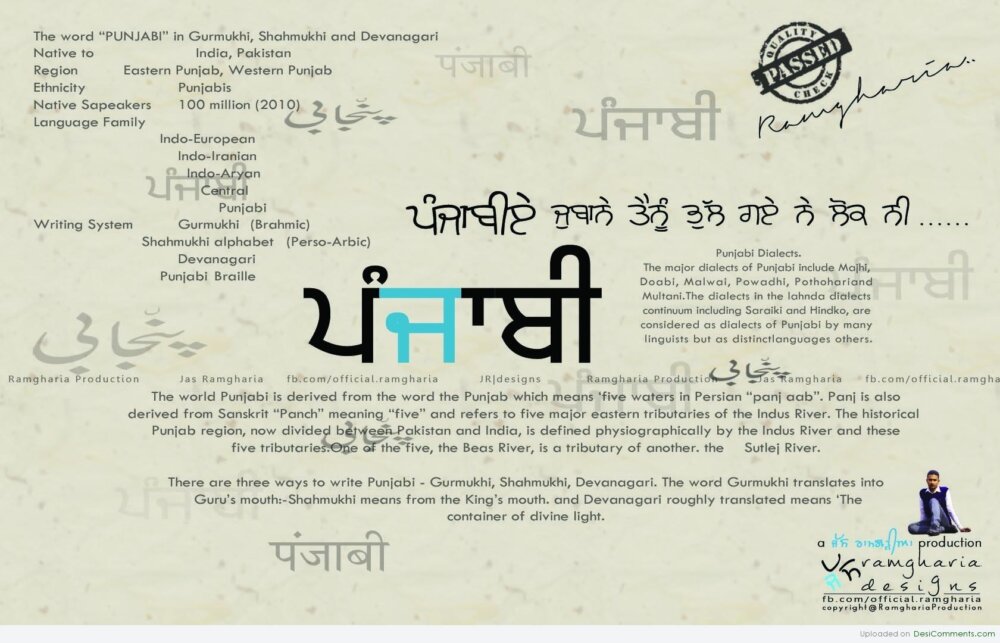 The word “PUNJABI” in Gurmukhi, Shahmukhi and Devanagari
Native to India, Pakistan
Region Eastern Punjab, Western Punjab
Ethnicity Punjabis
Native Sapeakers 100 million (2010)
Language Family
Indo-European
Indo-Iranian
Indo-Aryan
Central
Punjabi
Writing System Gurmukhi (Brahmic)
Shahmukhi alphabet (Perso-Arbic)
Devanagari
Punjabi Braille
पंजाबी
پنجابی
ਪੰਜਾਬੀ
ਪੰਜਾਬੀ
QUALITY
PASSED
CHECK
Ramgharia..
ਪੰਜਾਬੀਏ ਜੁਬਾਨੇ ਤੈਨੂੰ ਭੁੱਲ ਗਏ ਨੇ ਲੋਕ ਨੀ ......
ਪੰਜਾਬੀ
Punjabi Dialects.
The major dialects of Punjabi include Majhi,
Doabi, Malwai, Powadhi, Pothohariand
Multani.The dialects in the lahnda dialects
continuum including Saraiki and Hindko, are
considered as dialects of Punjabi by many
linguists but as distinctlanguages others.
ਪੰਜਾਬੀ
پنجابی
پنجابی
Ramgharia Production Jas Ramgharia fb.com/official.ramgharia JR|designs Ramgharia Production Jas Ramgharia fb.com/official.ramgha
ਪੰਜਾਬੀ
The world Punjabi is derived from the word the Punjab which means 'five waters in Persian “panj aab”. Panj is also
derived from Sanskrit “Panch” meaning “five” and refers to five major eastern tributaries of the Indus River. The historical
Punjab region, now divided between Pakistan and India, is defined physiographically by the Indus River and these
five tributaries.One of the five, the Beas River, is a tributary of another. the Sutlej River.
پنجابی
There are three ways to write Punjabi - Gurmukhi, Shahmukhi, Devanagari. The word Gurmukhi translates into
Guru's mouth:-Shahmukhi means from the King's mouth. and Devanagari roughly translated means ‘The
container of divine light.
ਪੰਜਾਬੀ
पंजाबी
a ਜੱਸ ਰਾਮਗੜ੍ਹੀਆ production
ramgharia
designs
fb.com/official.ramgharia
copyright@RamghariaProduction
Uploaded on DesiComments.com